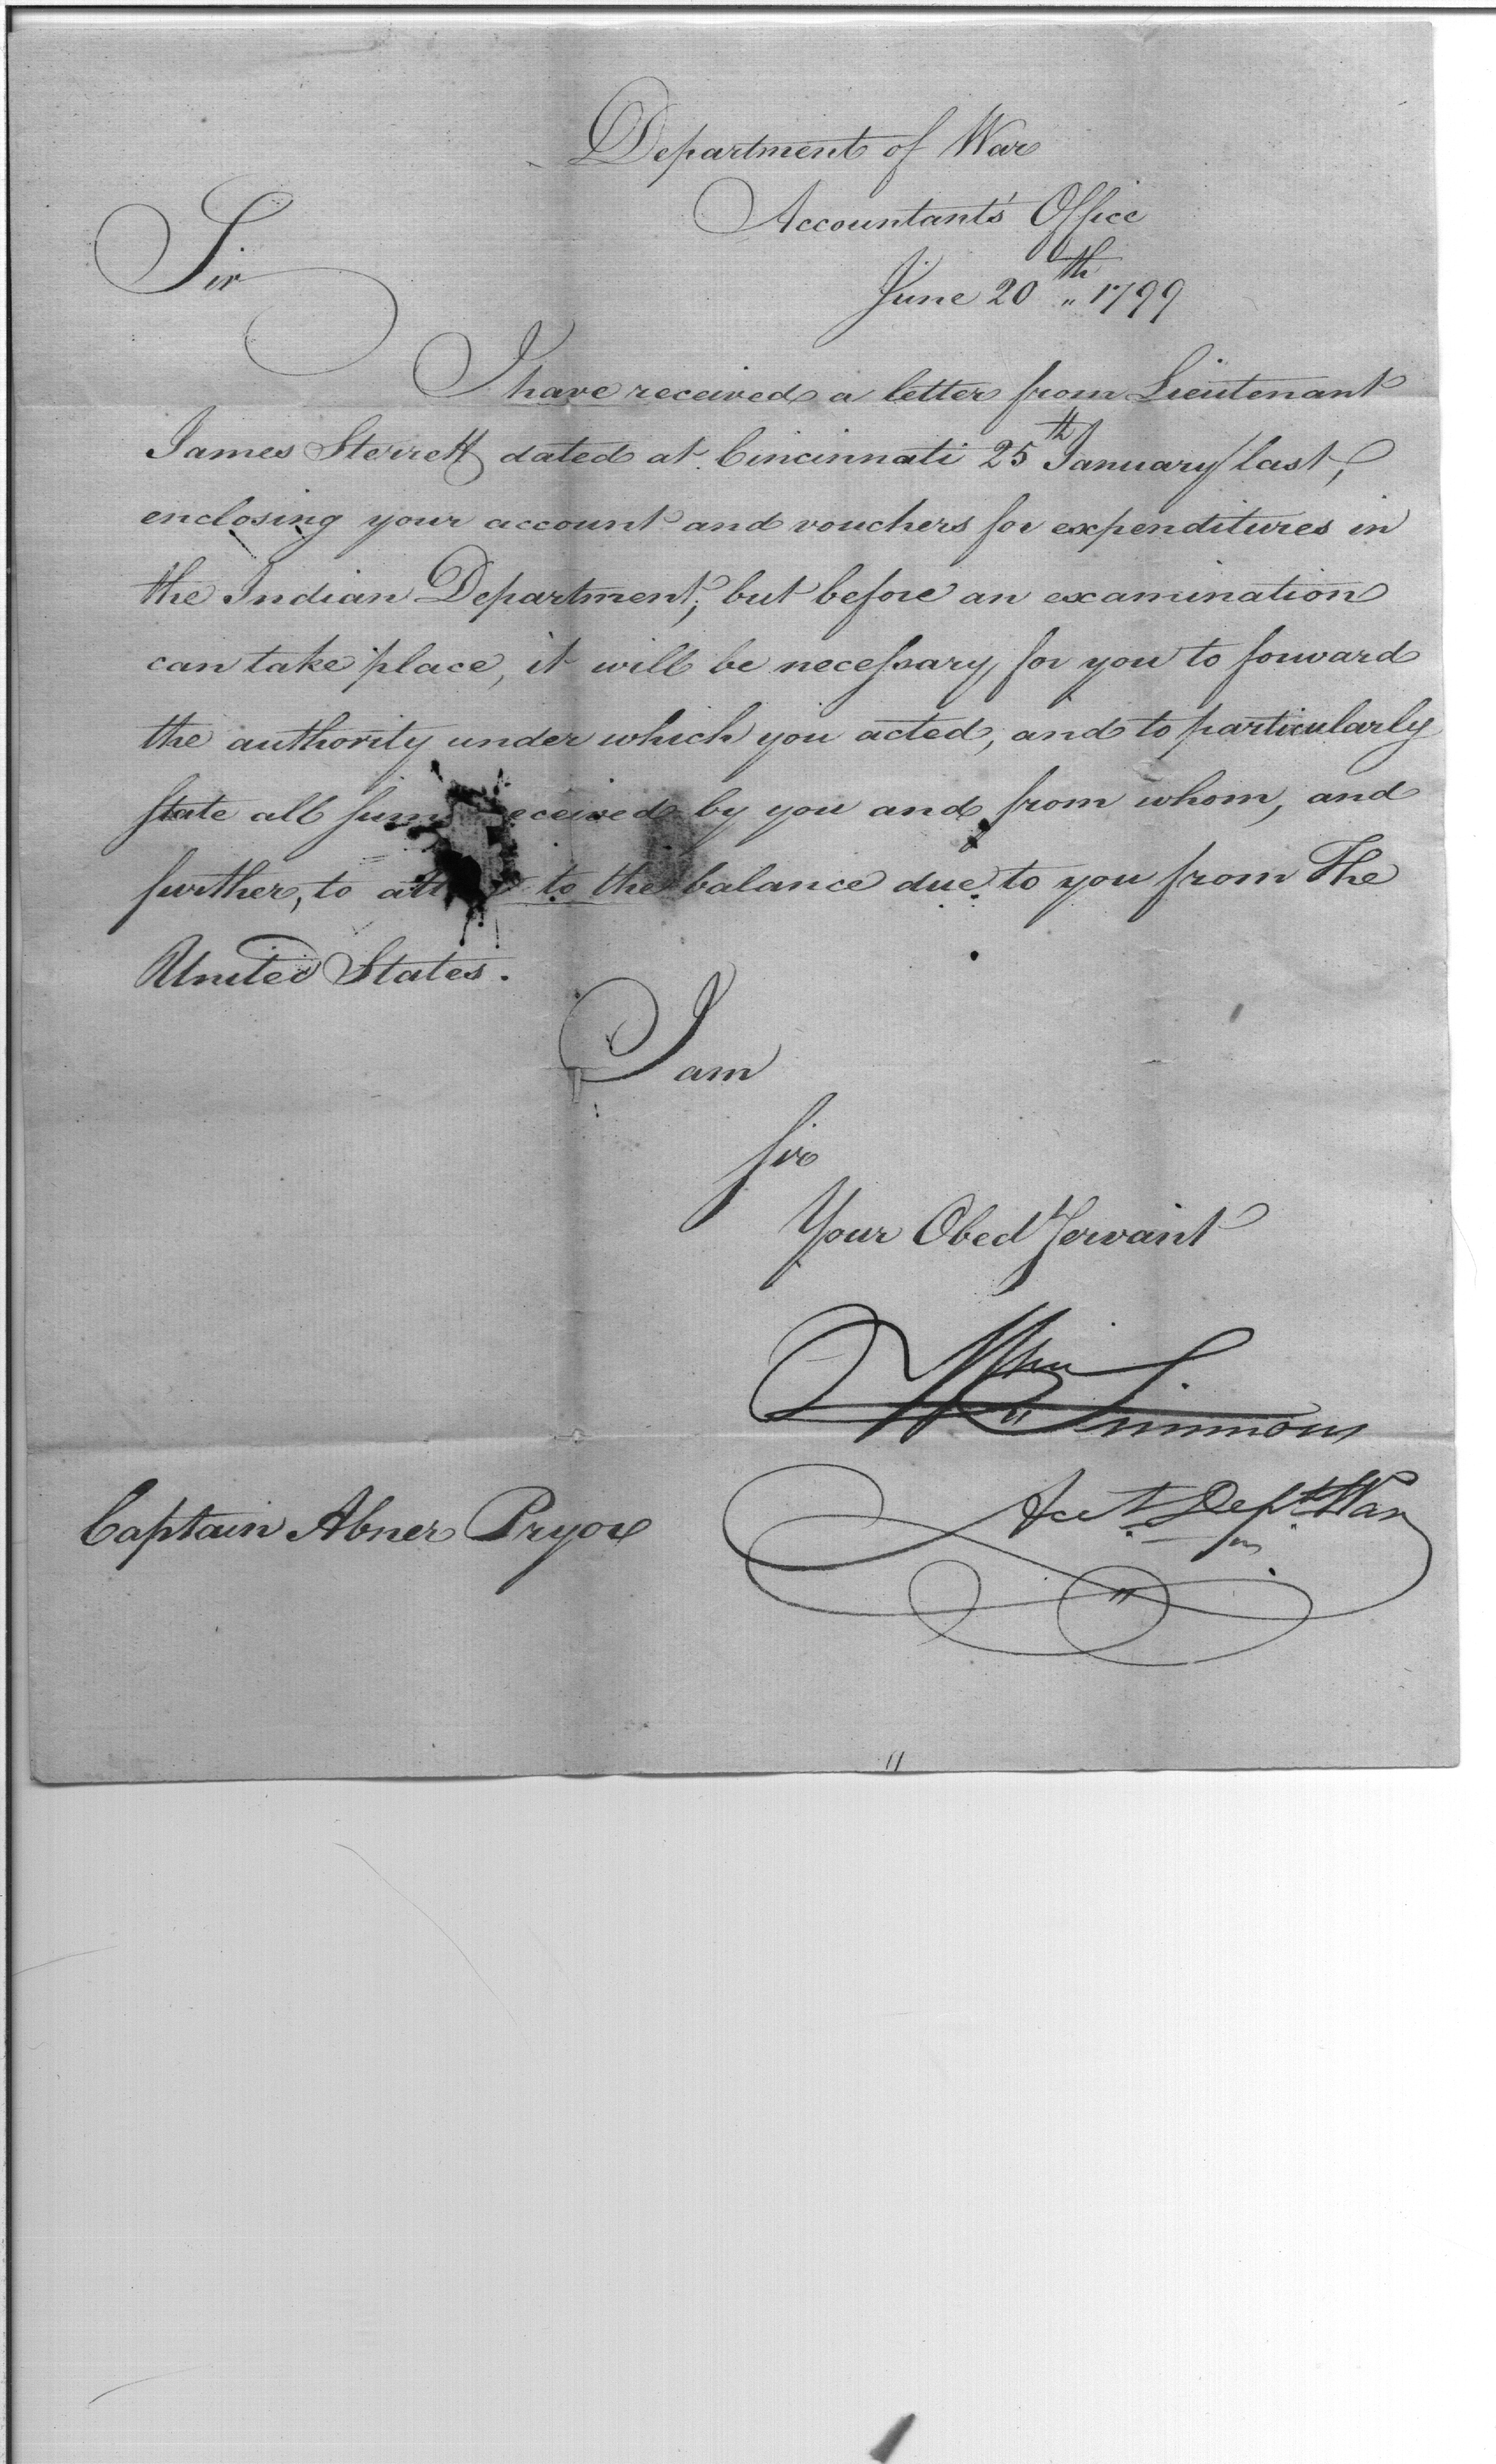 Department of War
Accountant's Office
June 20th 1799
Sir
I have received a letter from Lieutenant
James Sterrett dated at Cincinnati 25th January last,
enclosing your account and vouchers for expenditures in
the Indian Department; but before an examination
can take place, it will be necessary, for you to forward
the authority under which you acted, and to particularly
state all sums received by you and from whom, and
further, to to the balance due to you from The
United States.
I am
Sir
Your Obedt Servant
Wm Simmons
Acct Dept War
Captain Abner Pryor